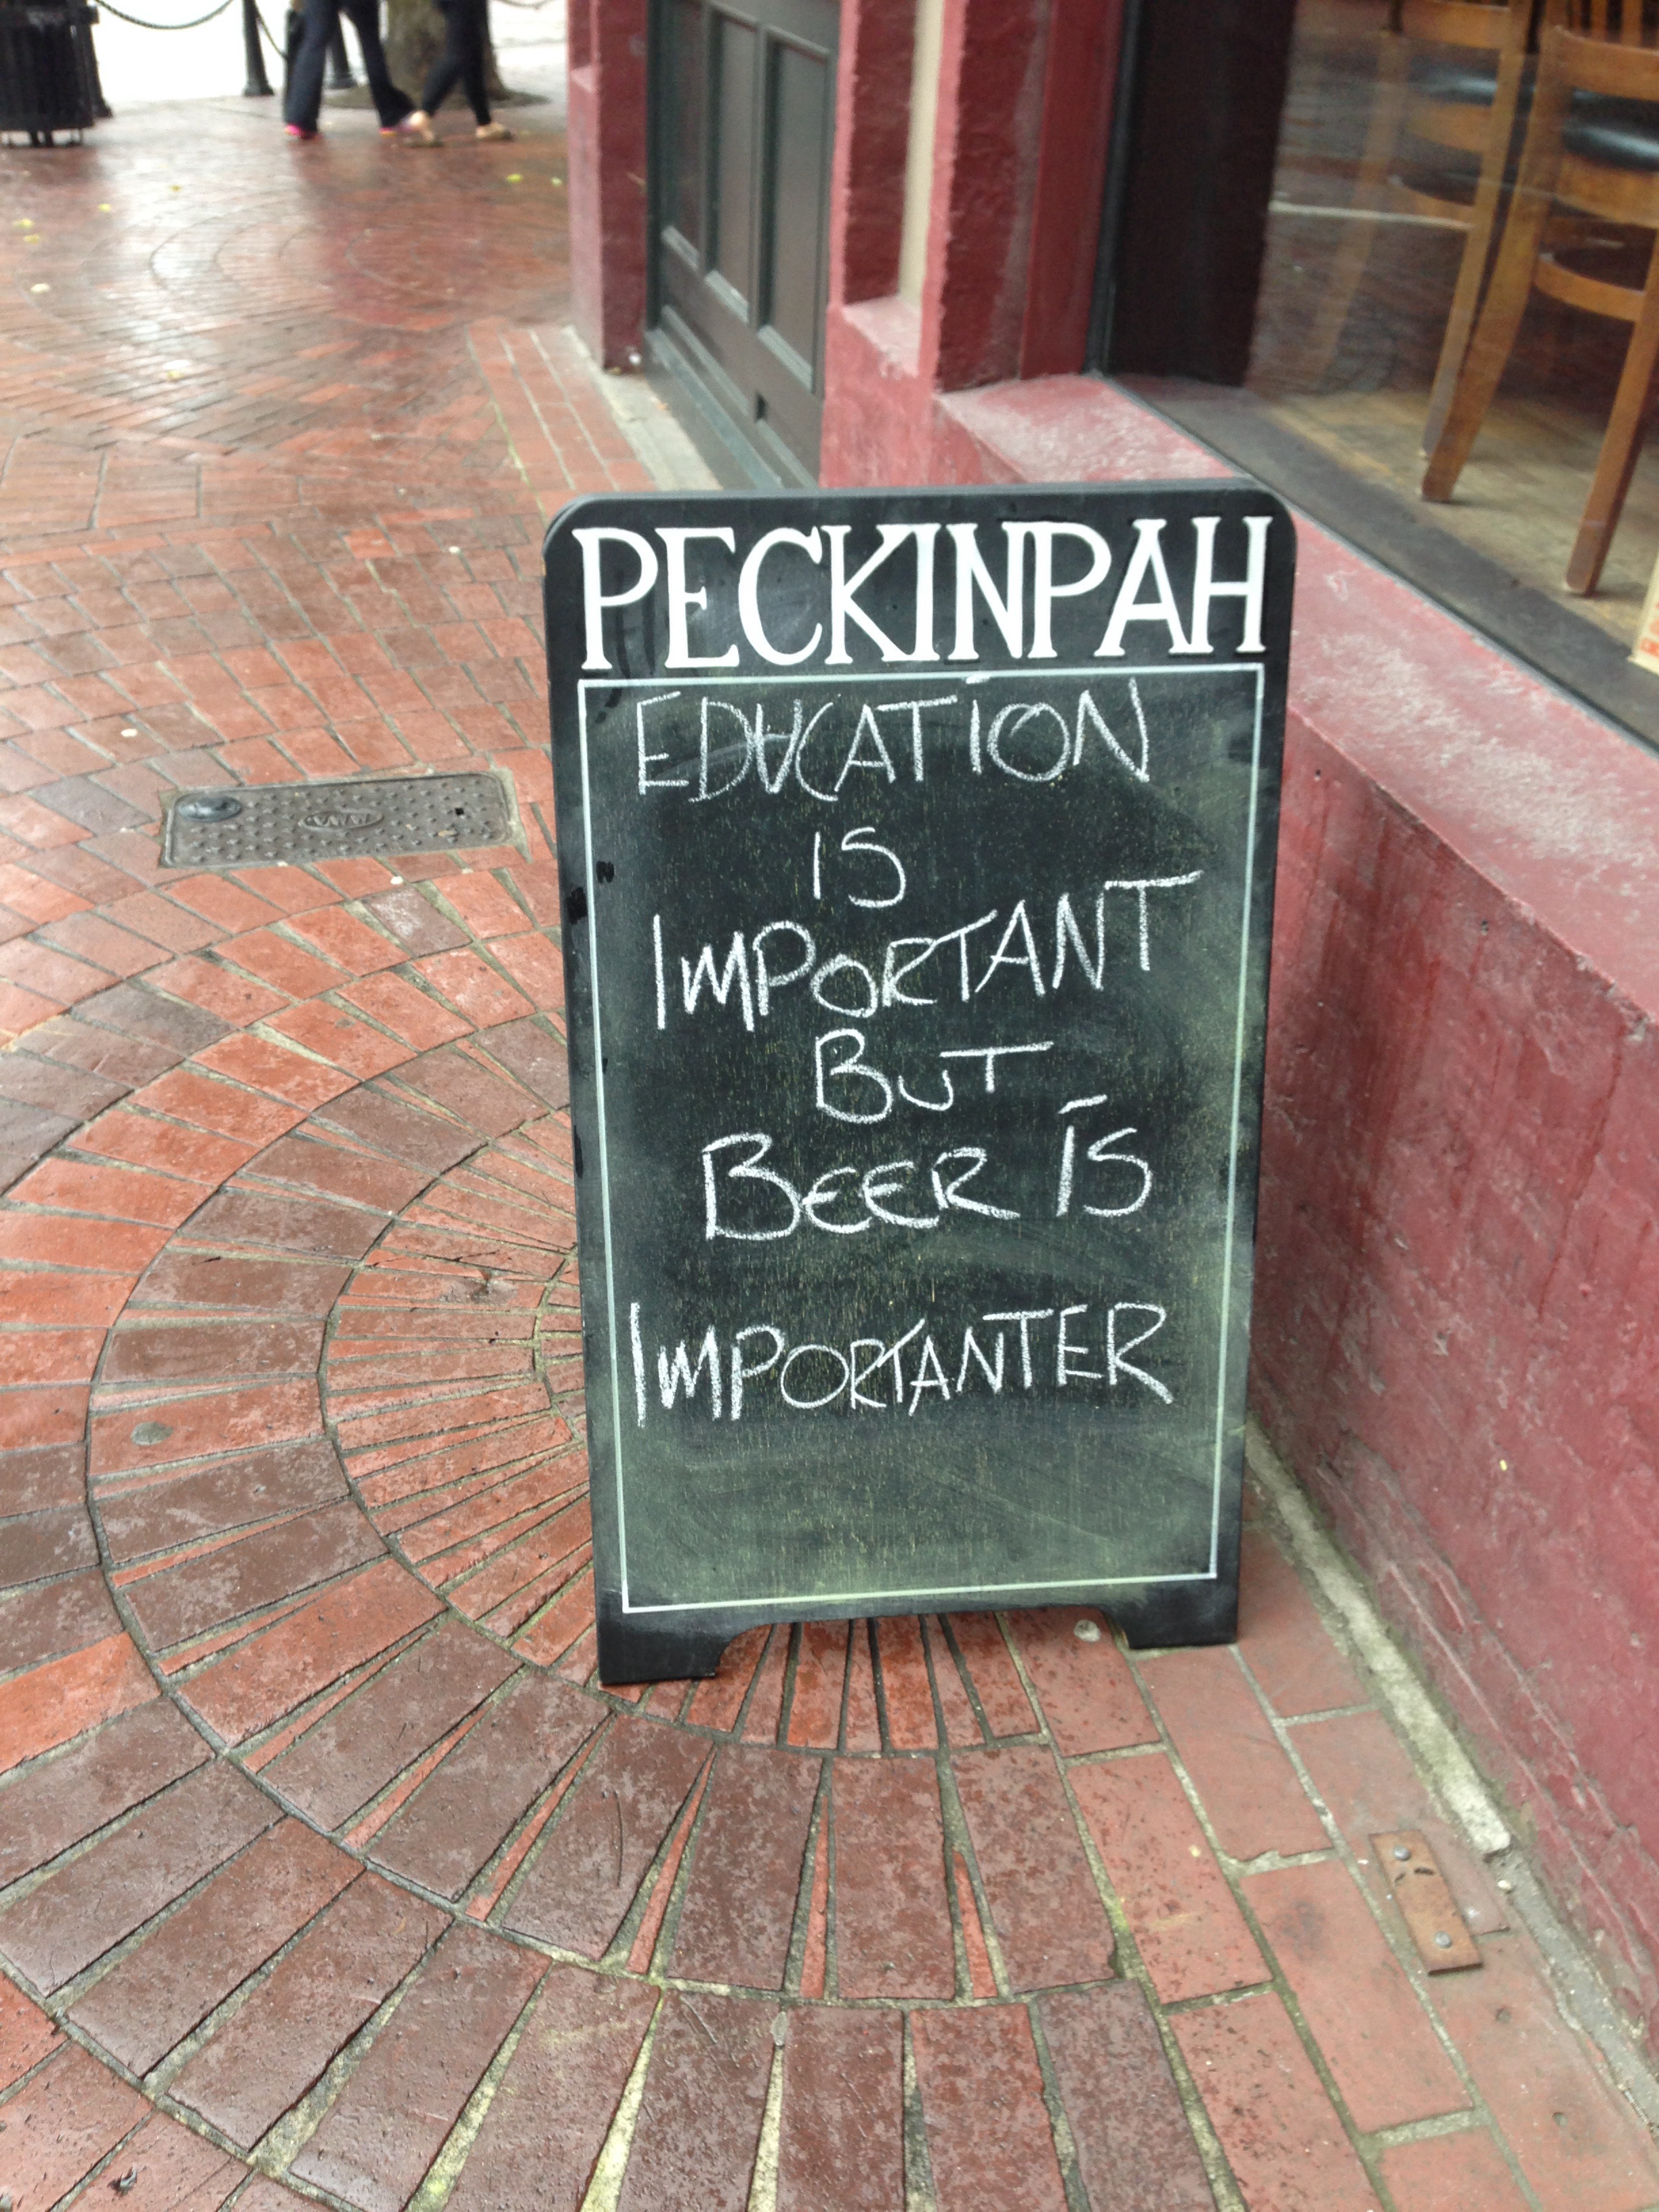 PECKINPAH
EDUCATION
IS
IMPORTANT
BUT
BEER IS
IMPORTANTER